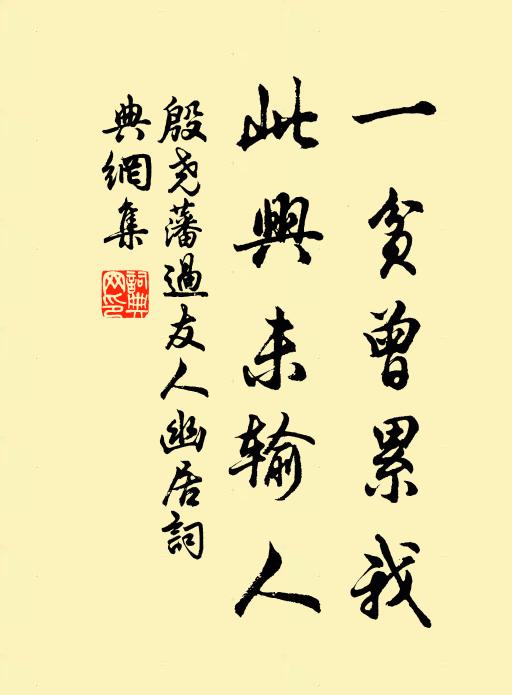 一貧曾累我
此興未輸人
殷堯藩過友人幽居詞
典網集
詞典網印